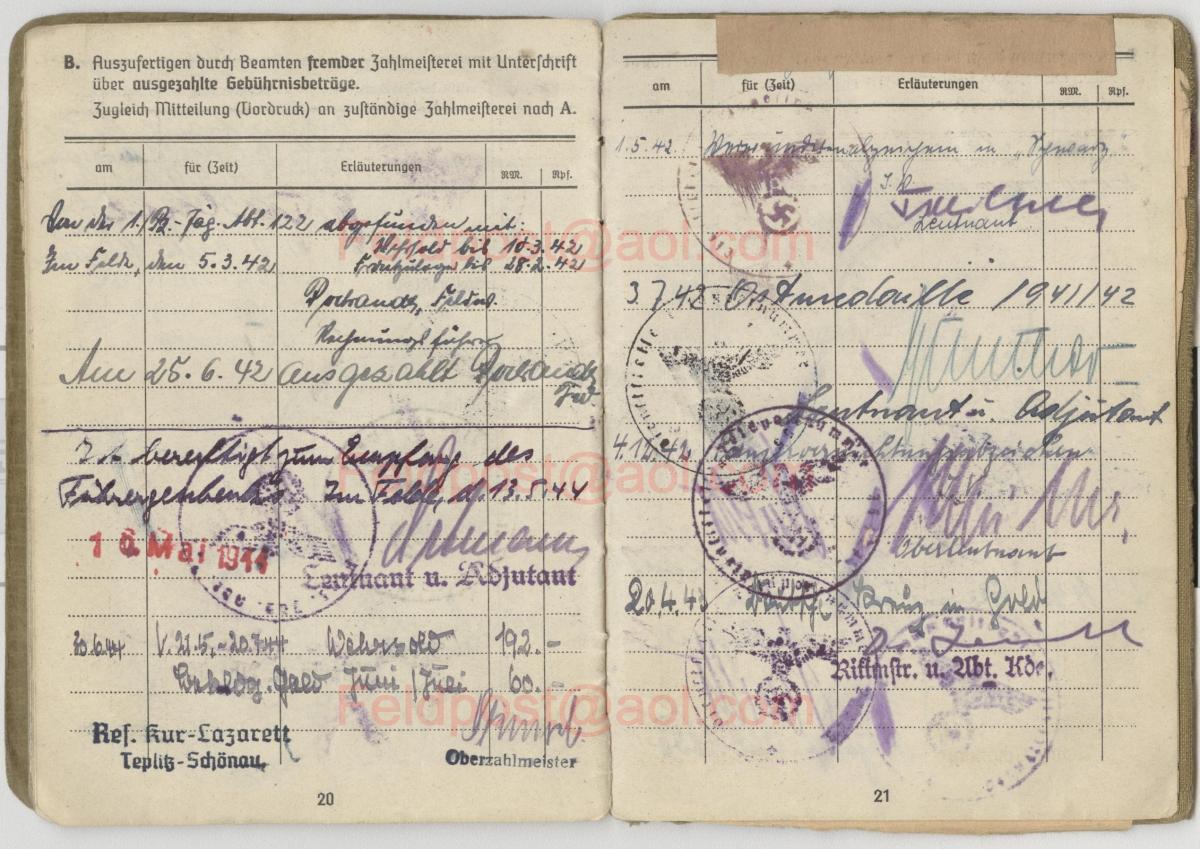 B. Auszufertigen durch Beamten fremder Zahlmeisterei mit Unterschrift
über ausgezahlte Gebührnisbeträge.
Zugleich Mitteilung (Vordruck) an zuständige Zahlmeisterei nach A.
am für (Zeit) Erläuterungen RM. Rpf.
Von der 1./Pz.-Jäg. Abt. 122 abgefunden mit:
Wehrsold bis 10.3.42
Im Felde, den 5.3.42 bis 28.2.42
Feldw.
Rechnungsführer
Am 25.6.42 ausgezahlt
Ist berechtigt zum Empfang des
Führergeschenks. Im Felde, d. 13.5.44
16. Mai 1944
Leutnant u. Adjutant
30.6.44 v. 21.5.-20.7.44 Wehrsold 192.-
Bekldg. Geld Juni/Juli 60.-
Res. Kur-Lazarett
Teplitz-Schönau
Oberzahlmeister
20
am für (Zeit) Erläuterungen RM. Rpf.
1.5.42 Verwundetenabzeichen in "Schwarz"
Leutnant
3.7.42 Ostmedaille 1941/42
Leutnant u. Adjutant
Feldpostnummer
Oberleutnant
20.4.43 Deutsches Kreuz in Gold
Rittmstr. u. Abt. Kdr.
21
Feldpost@aol.com
Feldpost@aol.com
Feldpost@aol.com